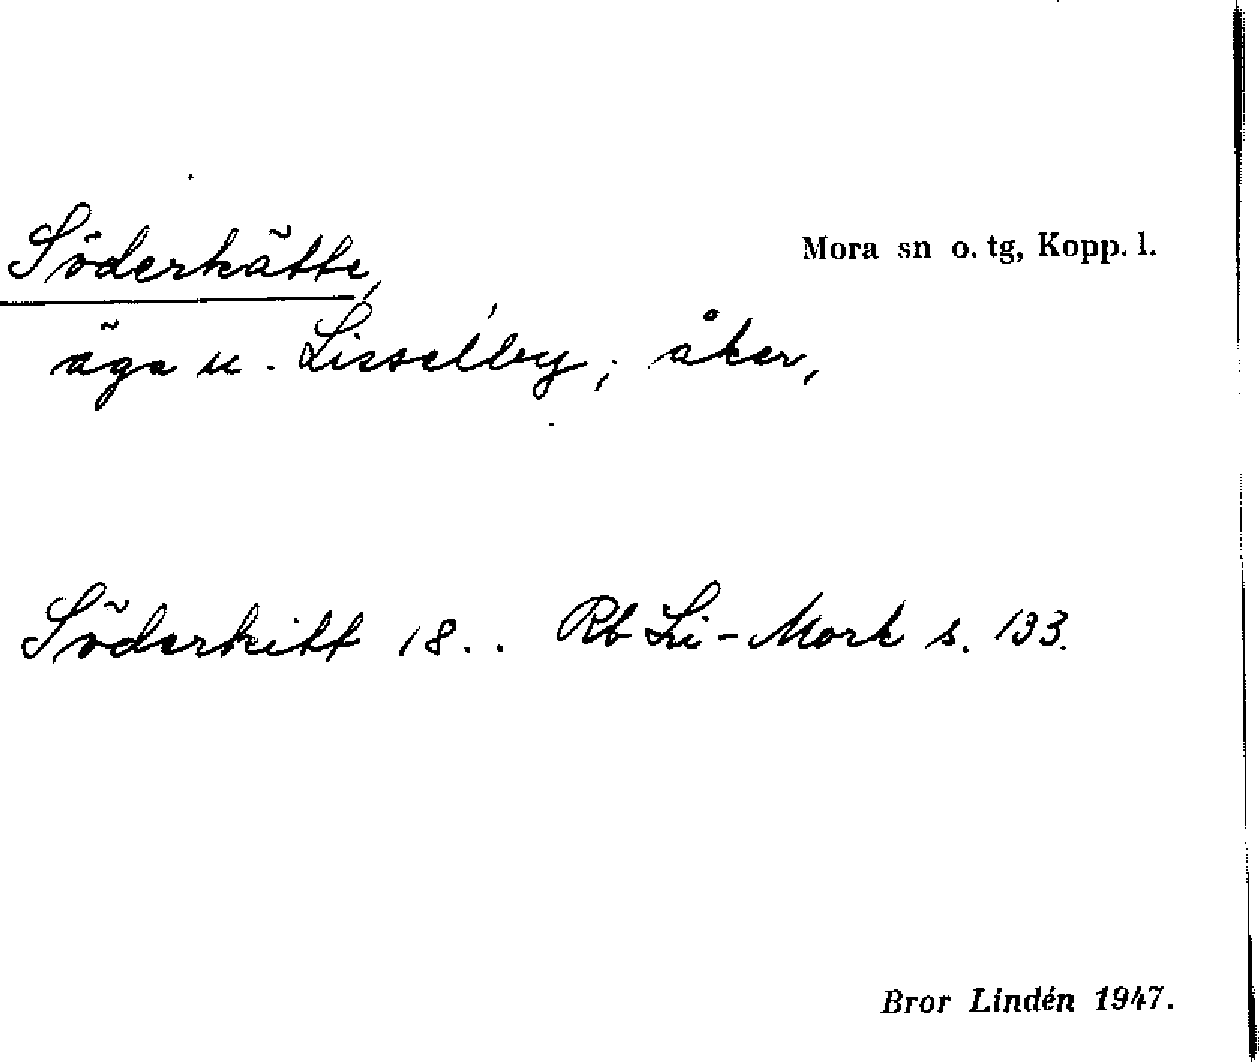 Söderkätte,
Mora sn o. tg, Kopp. l.
äga u. Lisselby; åker,
Söderkitt 18.. Rb Li-Mork s. 133.
Bror Lindén 1947.